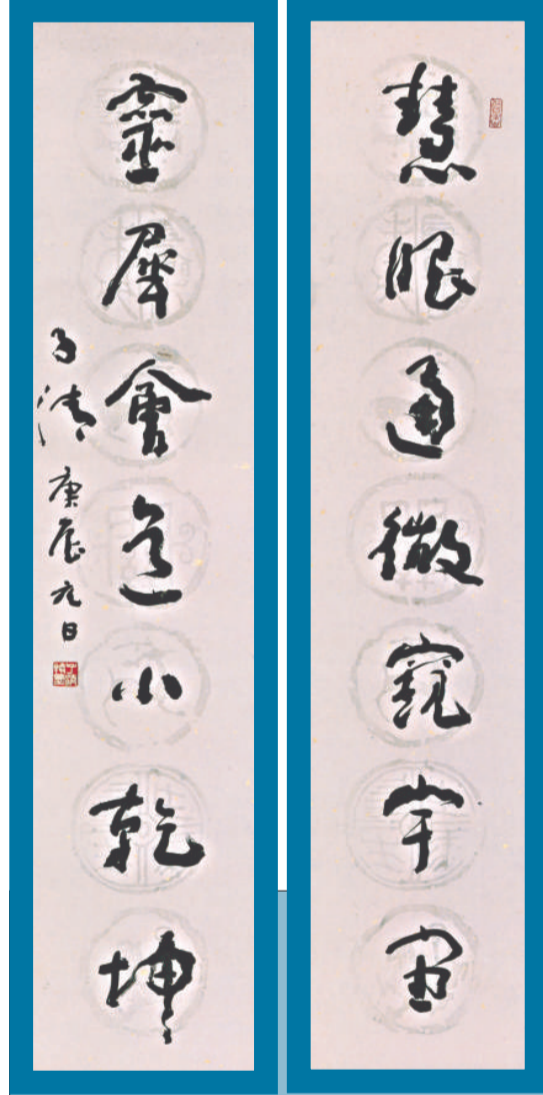 慧眼通微窺宇宙
靈犀會意小乾坤
子清 庚辰元日